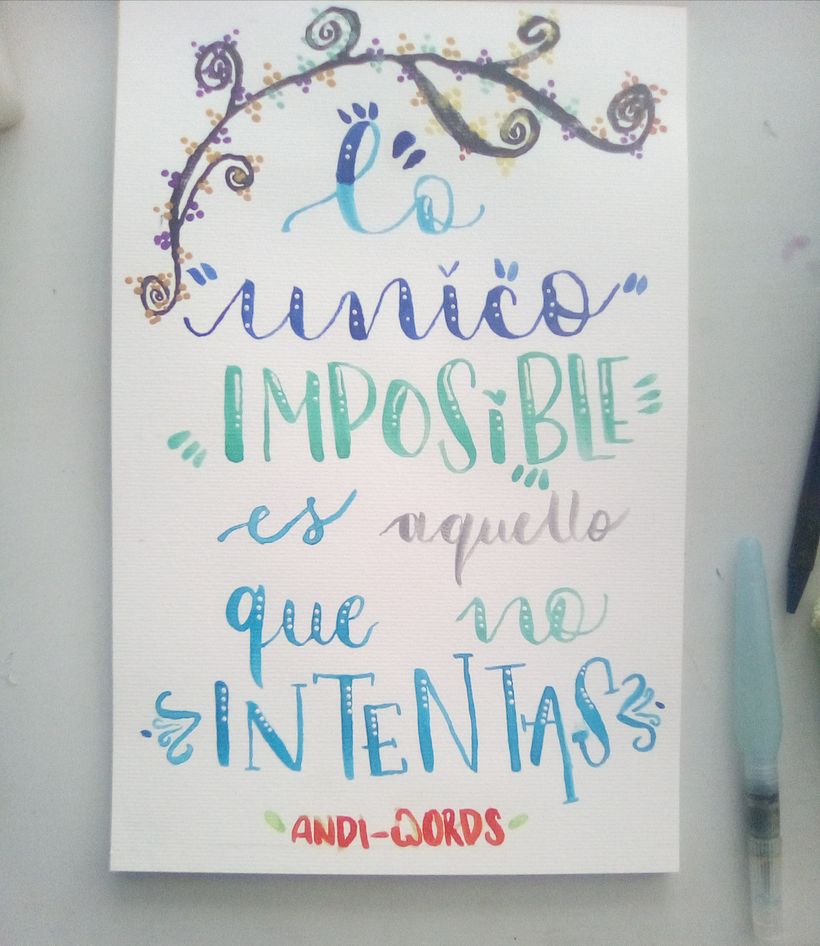 lo
"unico"
IMPOSIBLE
es aquello
que no
INTENTAS
ANDI-WORDS